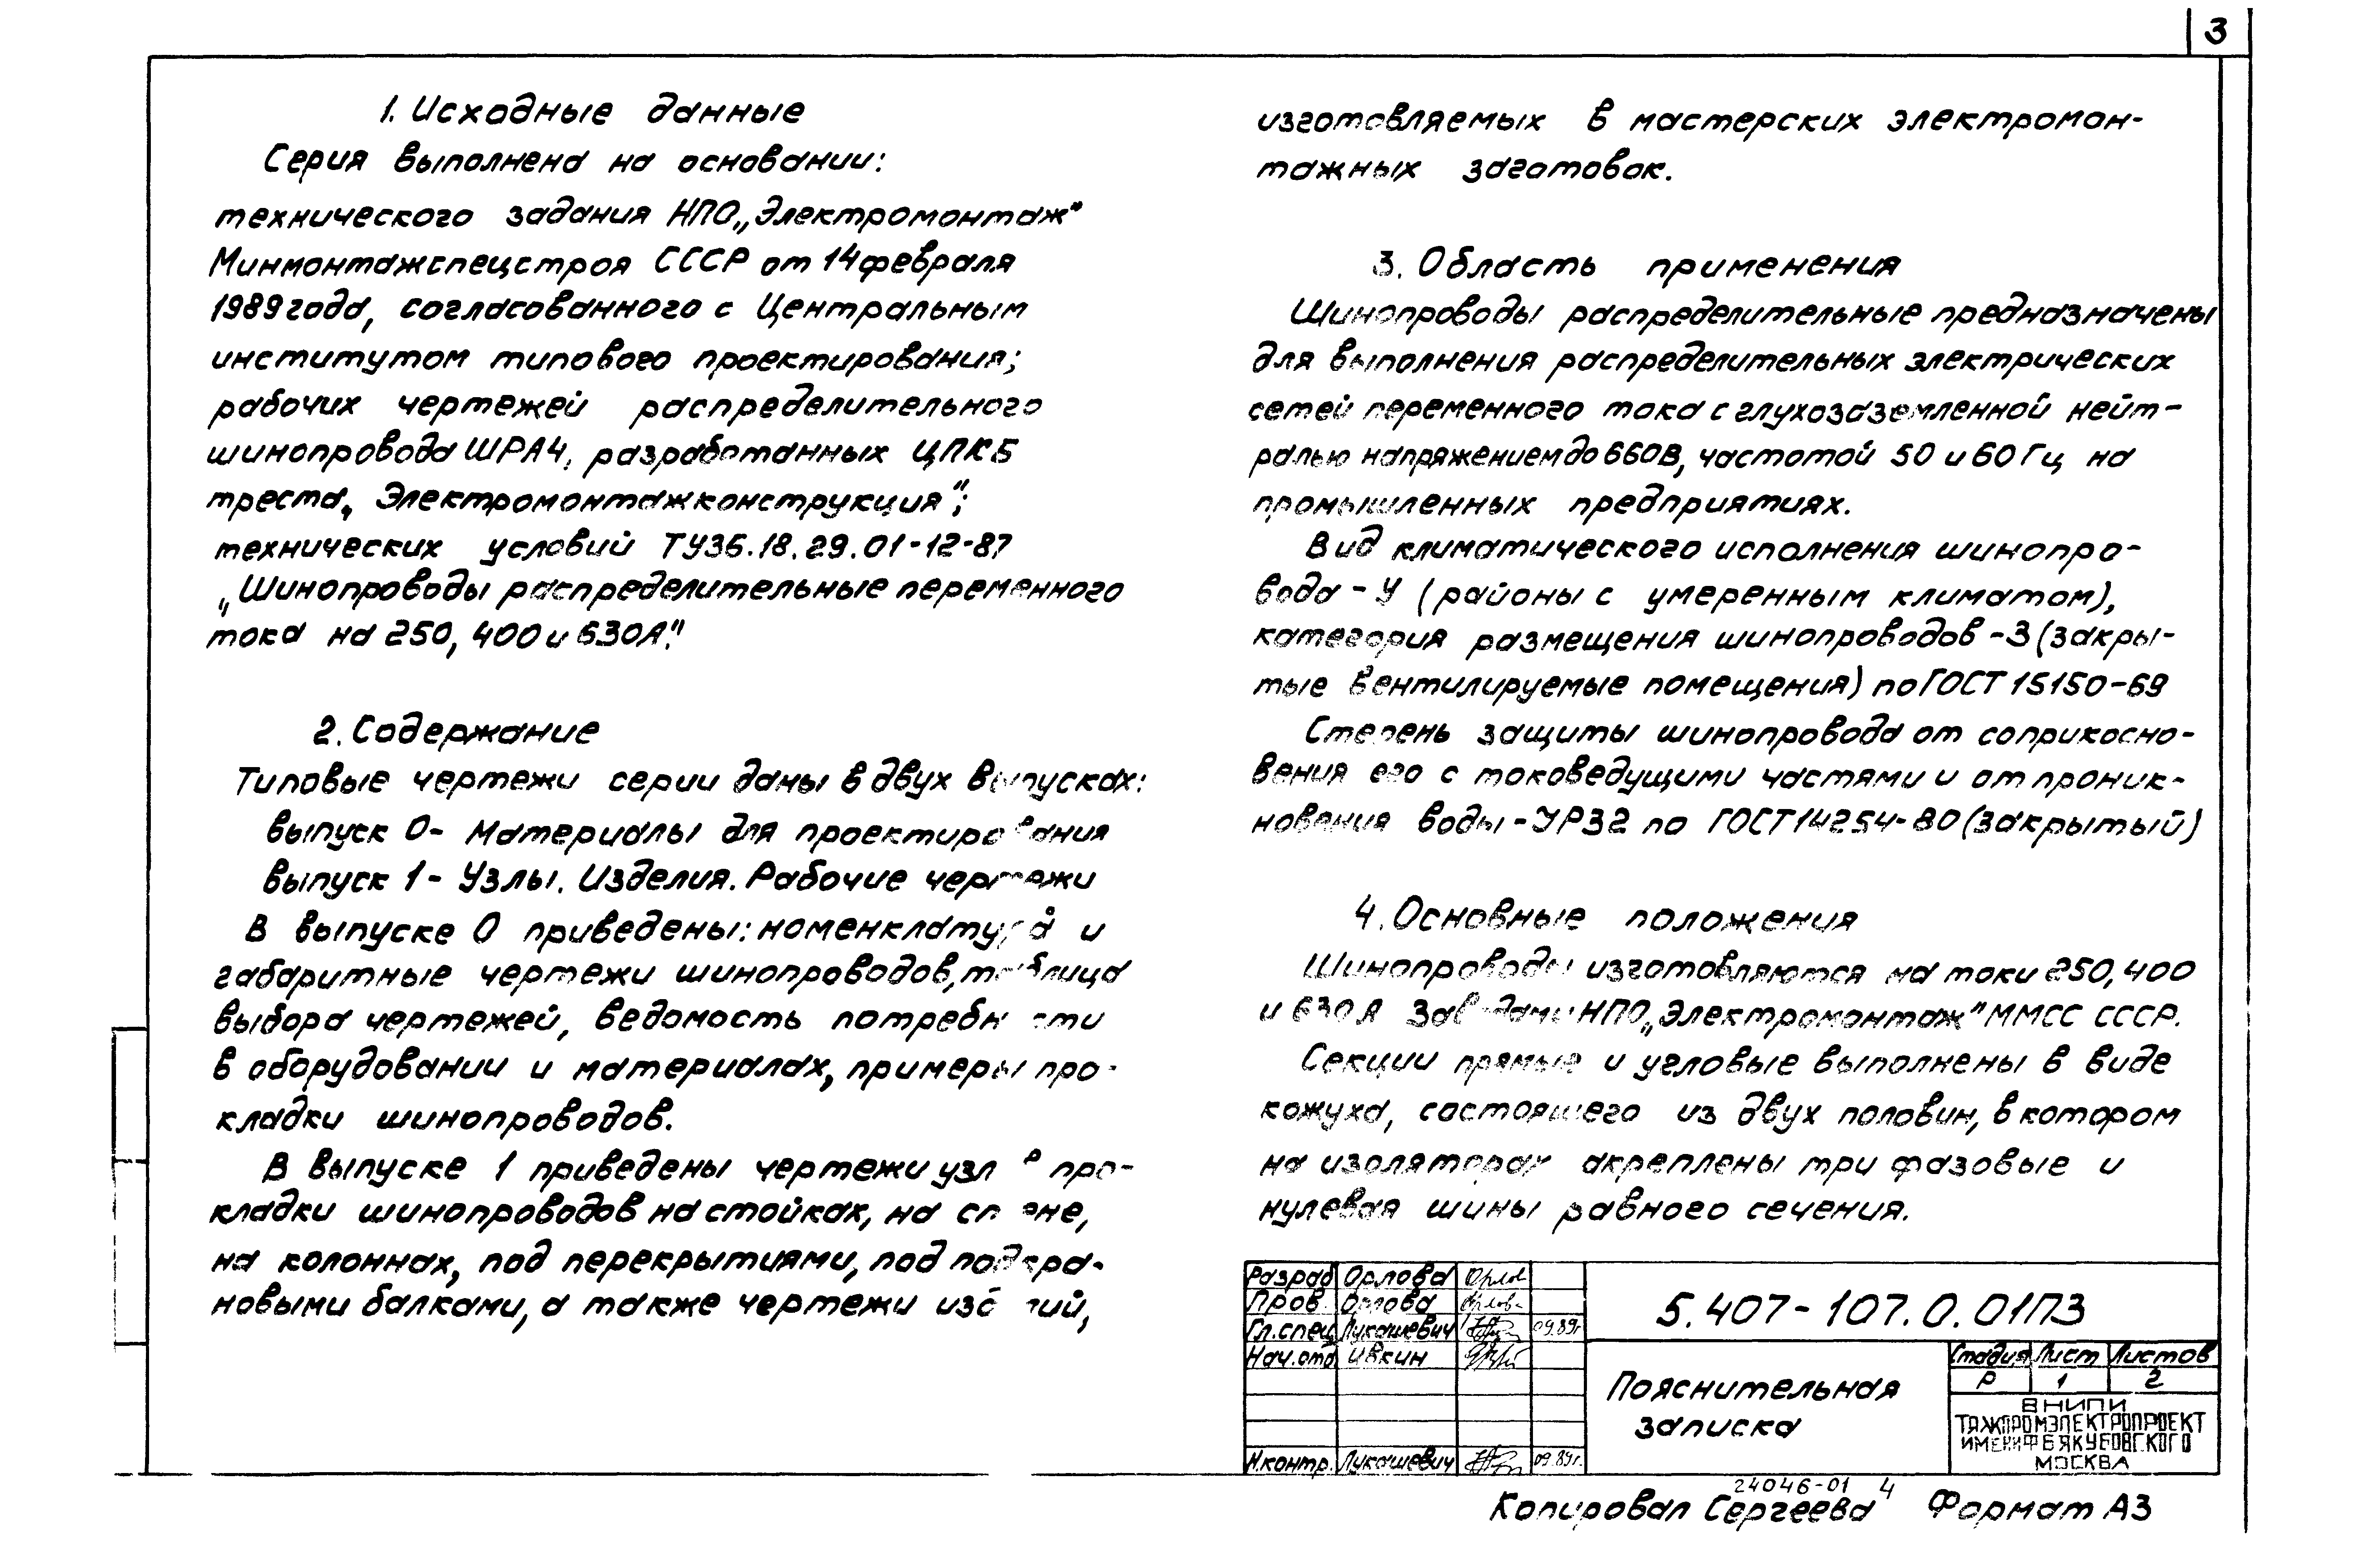 3
1. Исходные данные
Серия выполнена на основании:
технического задания НПО „Электромонтаж"
Минмонтажспецстроя СССР от 14 февраля
1989 года, согласованного с Центральным
институтом типового проектирования;
рабочих чертежей распределительного
шинопровода ШРА4, разработанных ЦПКБ
треста „Электромонтажконструкция";
технических условий ТУ36.18.29.01-12-87
„Шинопроводы распределительные переменного
тока на 250, 400 и 630А."
2. Содержание
Типовые чертежи серии даны в двух выпусках:
выпуск 0- Материалы для проектирования
выпуск 1- Узлы. Изделия. Рабочие чертежи
В выпуске 0 приведены: номенклатура и
габаритные чертежи шинопроводов, таблица
выбора чертежей, ведомость потребности
в оборудовании и материалах, примеры про-
кладки шинопроводов.
В выпуске 1 приведены чертежи узлов про-
кладки шинопроводов на стойках, на стене,
на колоннах, под перекрытиями, под подкра-
новыми балками, а также чертежи изделий,
изготовляемых в мастерских электромон-
тажных заготовок.
3. Область применения
Шинопроводы распределительные предназначены
для выполнения распределительных электрических
сетей переменного тока с глухозаземленной нейт-
ралью напряжением до 660В, частотой 50 и 60 Гц на
промышленных предприятиях.
Вид климатического исполнения шинопро-
вода - У (районы с умеренным климатом),
категория размещения шинопроводов - 3 (закры-
тые вентилируемые помещения) по ГОСТ 15150-69
Степень защиты шинопровода от соприкосно-
вения его с токоведущими частями и от проник-
новения воды - УР32 по ГОСТ 14254-80 (закрытый)
4. Основные положения
Шинопроводы изготовляются на токи 250, 400
и 630А заводами НПО „Электромонтаж" ММСС СССР.
Секции прямые и угловые выполнены в виде
кожуха, состоящего из двух половин, в котором
на изоляторах акреплены три фазовые и
нулевая шины равного сечения.
Разраб Орлова
Пров. Орлова
Гл. спец Лукашевич 09.89г
Нач. отд Ивкин
Н.контр. Лукашевич 09.89г.
5.407-107.0.01ПЗ
Пояснительная
записка
Стадия Лист Листов
Р 1 2
ВНИПИ
ТЯЖПРОМЭЛЕКТРОПРОЕКТ
ИМЕНИ Ф Б ЯКУБОВСКОГО
МОСКВА
24046-01 4
Копировал Сергеева Формат А3